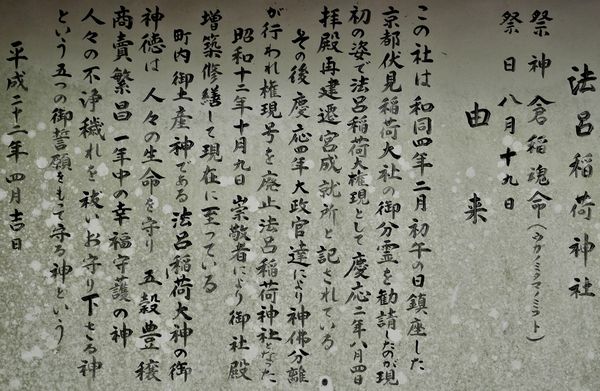 法呂稲荷神社
祭神 倉稲魂命(ウカノミタマノミコト)
祭日 八月十九日
由来
この社は和同四年二月初午の日鎮座した
京都伏見稲荷大社の御分霊を勧請したのが現
初の姿で法呂稲荷大権現として慶応二年八月四日
拝殿再建遷宮成就所と記されている
その後慶応四年大政官達により神佛分離
が行われ権現号を廃止法呂稲荷神社となった
昭和十二年十月九日崇敬者により御社殿
増築修繕して現在に至っている
町内御土産神である法呂稲荷大神の御
神徳は人々の生命を守り五穀豊穣
商賣繁昌一年中の幸福守護の神
人々の不浄穢れを祓いお守り下さる神
という五つの御誓願をもって守る神という
平成二十二年四月吉日